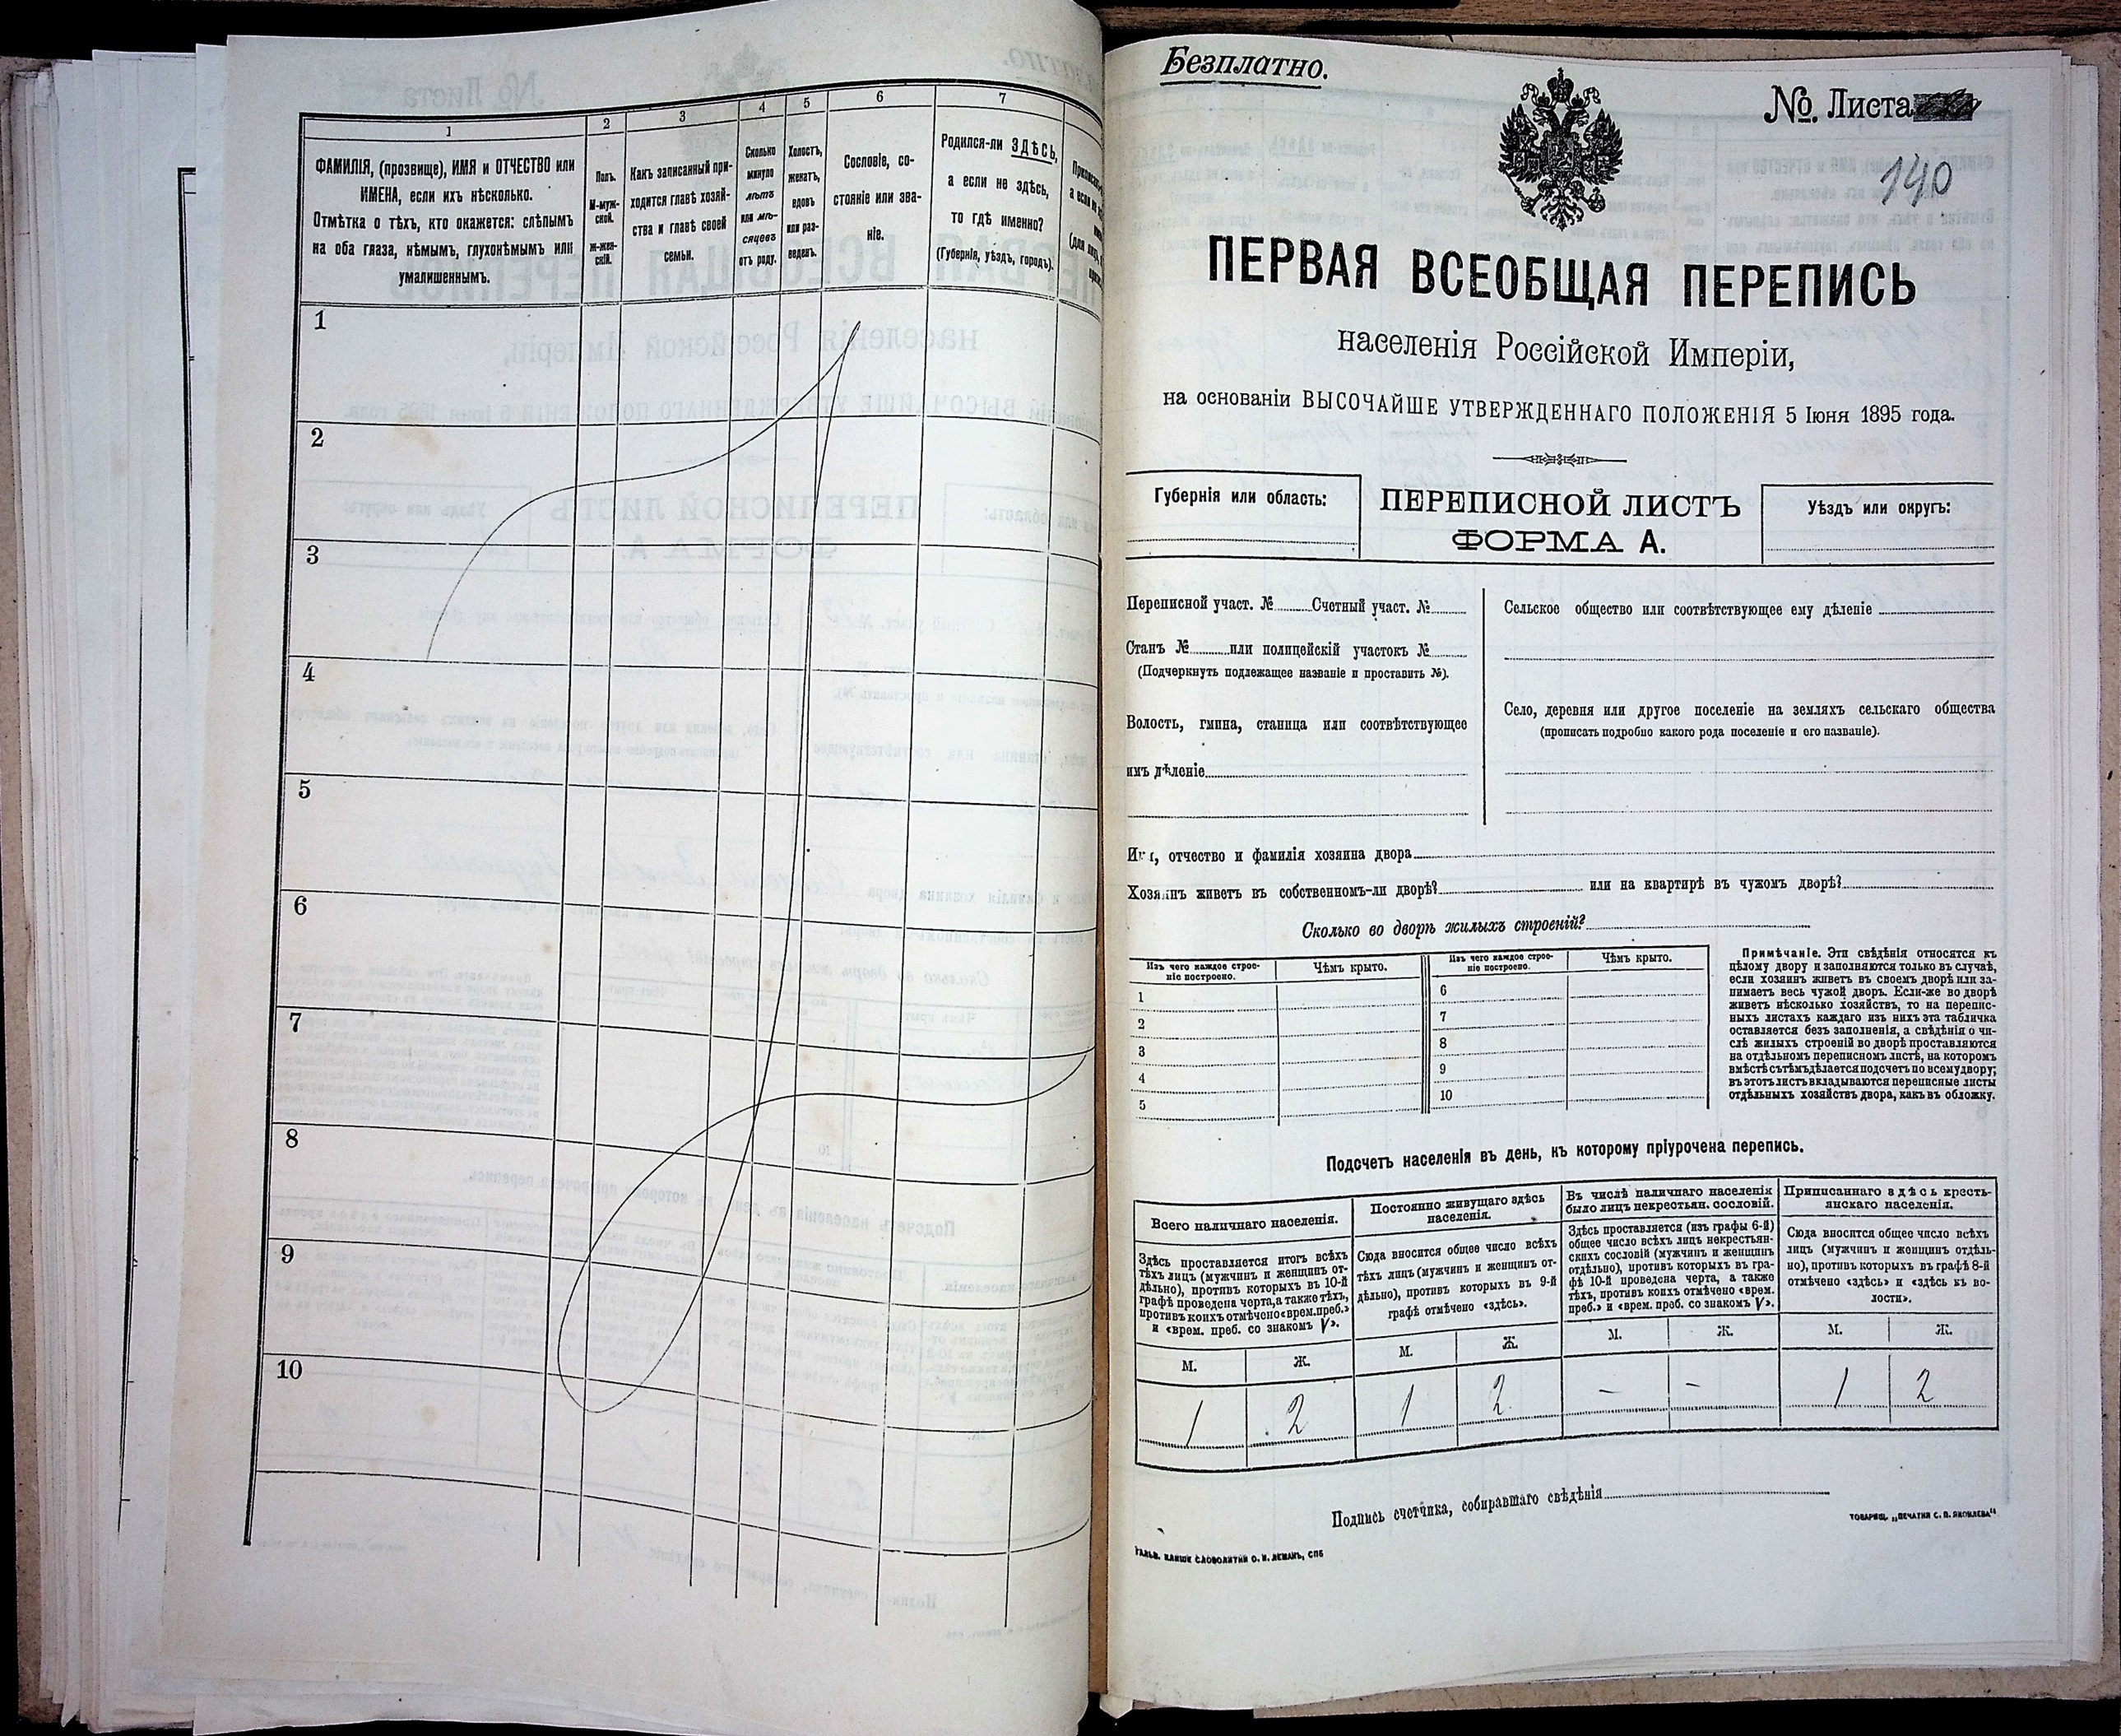 1
2
3
4
5
6
7
ФАМИЛІЯ, (прозвище), ИМЯ и ОТЧЕСТВО или
ИМЕНА, если ихъ нѣсколько.
Отмѣтка о тѣхъ, кто окажется: слѣпымъ
на оба глаза, нѣмымъ, глухонѣмымъ или
умалишеннымъ.
Полъ.
М-муж-
ской.
Ж-жен-
скій.
Какъ записанный при-
ходится главѣ хозяй-
ства и главѣ своей
семьи.
Сколько
минуло
лѣтъ
или мѣ-
сяцевъ
отъ роду.
Холостъ,
женатъ,
вдовъ
или раз-
веденъ.
Сословіе, со-
стояніе или зва-
ніе.
Родился-ли ЗДѢСЬ,
а если не здѣсь,
то гдѣ именно?
(Губернія, уѣздъ, городъ).
1
2
3
4
5
6
7
8
9
10
Безплатно.
№ Листа
140
ПЕРВАЯ ВСЕОБЩАЯ ПЕРЕПИСЬ
населенія Россійской Имперіи,
на основаніи ВЫСОЧАЙШЕ УТВЕРЖДЕННАГО ПОЛОЖЕНІЯ 5 Іюня 1895 года.
Губернія или область:
ПЕРЕПИСНОЙ ЛИСТЪ
ФОРМА А.
Уѣздъ или округъ:
Переписной участ. № Счетный участ. №
Станъ № или полицейскій участокъ №
(Подчеркнуть подлежащее названіе и проставить №).
Волость, гмина, станица или соотвѣтствующее
имъ дѣленіе
Сельское общество или соотвѣтствующее ему дѣленіе
Село, деревня или другое поселеніе на земляхъ сельскаго общества
(прописать подробно какого рода поселеніе и его названіе).
Имя, отчество и фамилія хозяина двора
Хозяинъ живетъ въ собственномъ-ли дворѣ? или на квартирѣ въ чужомъ дворѣ?
Сколько во дворѣ жилыхъ строеній?
Изъ чего каждое строе-
ніе построено.
Чѣмъ крыто.
Изъ чего каждое строе-
ніе построено.
Чѣмъ крыто.
1
2
3
4
5
6
7
8
9
10
Примѣчаніе. Эти свѣдѣнія относятся къ
цѣлому двору и заполняются только въ случаѣ,
если хозяинъ живетъ въ своемъ дворѣ или за-
нимаетъ весь чужой дворъ. Если-же во дворѣ
живетъ нѣсколько хозяйствъ, то на перепис-
ныхъ листахъ каждаго изъ нихъ эта табличка
оставляется безъ заполненія, а свѣдѣнія о чи-
слѣ жилыхъ строеній во дворѣ проставляются
на отдѣльномъ переписномъ листѣ, на которомъ
вмѣстѣ съ тѣмъ дѣлается подсчетъ по всему двору;
въ этотъ листъ вкладываются переписные листы
отдѣльныхъ хозяйствъ двора, какъ въ обложку.
Подсчетъ населенія въ день, къ которому пріурочена перепись.
Всего наличнаго населенія.
Здѣсь проставляется итогъ всѣхъ
тѣхъ лицъ (мужчинъ и женщинъ от-
дѣльно), противъ которыхъ въ 10-й
графѣ проведена черта, а также тѣхъ,
противъ коихъ отмѣчено «врем. преб.»
и «врем. преб. со знакомъ V».
М.
Ж.
1
2
Постоянно живущаго здѣсь
населенія.
Сюда вносится общее число всѣхъ
тѣхъ лицъ (мужчинъ и женщинъ от-
дѣльно), противъ которыхъ въ 9-й
графѣ отмѣчено «здѣсь».
М.
Ж.
1
2
Въ числѣ наличнаго населенія
было лицъ некрестьян. сословій.
Здѣсь проставляется (изъ графы 6-й)
общее число всѣхъ лицъ некрестьян-
скихъ сословій (мужчинъ и женщинъ
отдѣльно), противъ которыхъ въ гра-
фѣ 10-й проведена черта, а также
тѣхъ, противъ коихъ отмѣчено «врем.
преб.» и «врем. преб. со знакомъ V».
М.
Ж.
–
–
Приписаннаго здѣсь кресть-
янскаго населенія.
Сюда вносится общее число всѣхъ
лицъ (мужчинъ и женщинъ отдѣль-
но), противъ которыхъ въ графѣ 8-й
отмѣчено «здѣсь» и «здѣсь къ во-
лости».
М.
Ж.
1
2
Подпись счетчика, собиравшаго свѣдѣнія
ТОВАРИЩ. „ПЕЧАТНЯ С. П. ЯКОВЛЕВА“
ГАЛЬВ. КЛИШЕ СЛОВОЛИТНИ О. И. ЛЕМАНЪ, СПБ